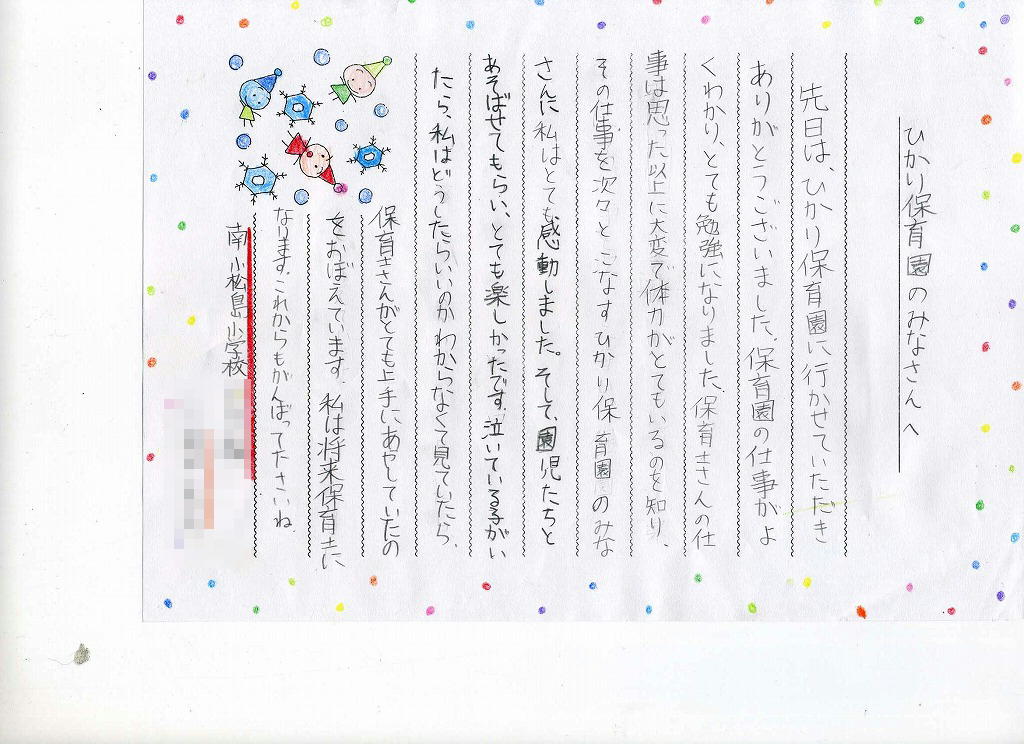 ひかり保育園のみなさんへ
先日は、ひかり保育園に行かせていただき
ありがとうございました。保育園の仕事がよ
くわかり、とても勉強になりました。保育士さんの仕
事は思った以上に大変で体力がとてもいるのを知り、
その仕事を次々とこなすひかり保育園のみな
さんに私はとても感動しました。そして、園児たちと
あそばせてもらい、とても楽しかったです。泣いている子がい
たら、私はどうしたらいいのかわからなくて見ていたら、
保育士さんがとても上手にあやしていたの
をおぼえています。私は将来保育士に
なります。これからもがんばってたさいね
南小松島小学校